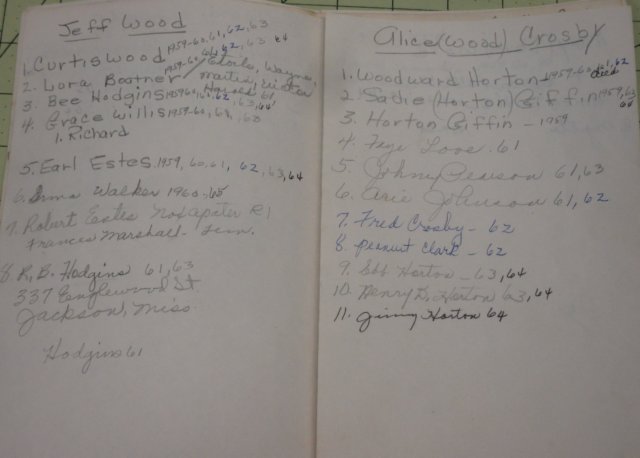 Jeff Wood
1. Curtis Wood 1959-60, 61, 62, 63 64
2. Lora Boatner 1959-60, 61, 62, 63 Charles, Wayne,
3. Bee Hodgins 1959 60, 61, 62, 63, 64 Harold 61
4. Grace Willis 1959-60, 61, 63
1. Richard
5. Earl Estes 1959, 60, 61, 62, 63, 64
6. Irma Walker 1960
7. Robert Estes Noxapater R1
Frances Marshall - Tenn.
8. R. B. Hodgins 61, 63
337 Englewood St
Jackson, Miss.
Hodgins 61
Alice (Wood) Crosby
1. Woodward Horton 1959-60, 61, 62 died
2 Sadie (Horton) Giffin 1959,
3. Horton Giffin - 1959
4. Faye Love. 61
5. Johny Pearson 61, 63
6. Arie Johnson 61, 62
7. Fred Crosby - 62
8. peanut Clark - 62
9. Ebb Horton - 63, 64
10. Henry D. Horton 63, 64
11. Jimmy Horton 64